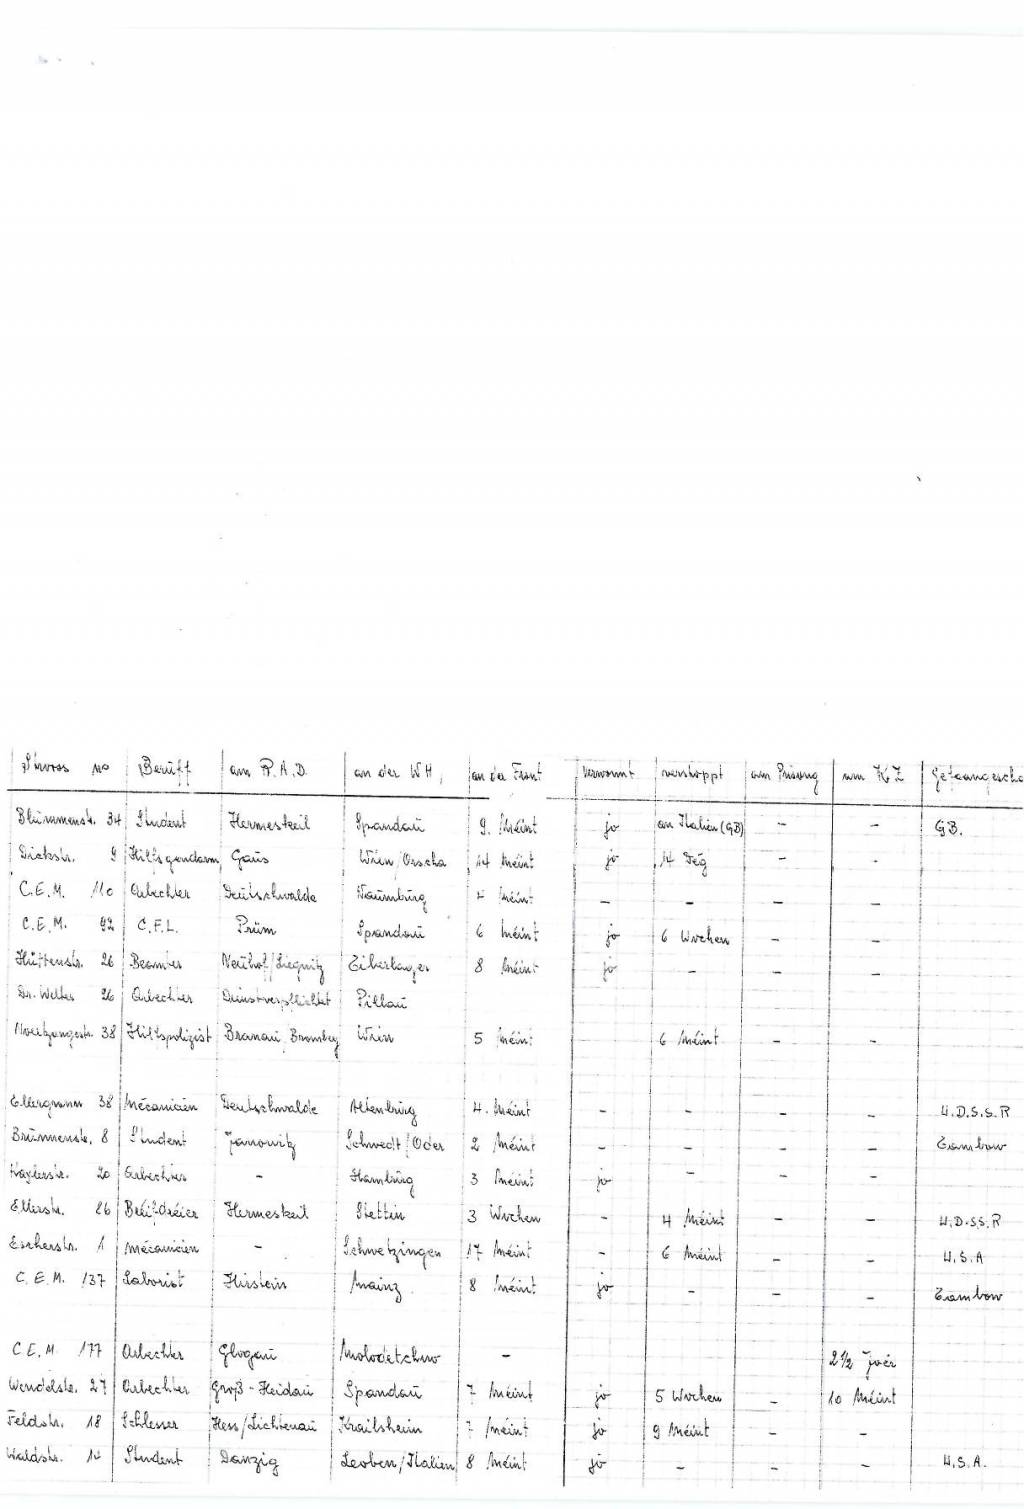 Strooss no Beruff am R.A.D. an der WH, an der Front verwonnt verstoppt am Prisong am KZ Gefaangescha
Blummenstr. 34 Student Hermeskeil Spandau 9. Méint jo an Italien (GB) - - GB.
Dickstr. 9 Hilfsgendarm Gaus Wien/Orscha 14 Méint jo 14 Deg - -
C.E.M. 110 Arbechter Deutschwalde Naumburg 4 Méint - - - -
C.E.M. 92 C.F.L. Prüm Spandau 6 Méint jo 6 Wochen - -
Hüttenstr. 26 Beamter Neuhof/Liegnitz 8 Méint jo - - -
Dr. Welter 26 Arbechter Dienstverpflichtet Pillau
38 Hilfspolizist Branau, Bromberg Wien 5 Méint 6 Méint - -
Ellergronn 38 Mécanicien Deutschwalde Altenburg 4. Méint - - - - U.D.S.S.R
Brunnenstr. 8 Student Janowitz Schwedt/Oder 2 Méint - - - - Tambow
20 Arbechter - Hamburg 3 Méint jo - - -
Ellerstr. 26 Bréifdréier Hermeskeil Stettin 3 Wochen - 4 Méint - - U.D.SS.R
Escherstr. 1 Mécanicien - Schwetzingen 17 Méint - 6 Méint - - U.S.A
C.E.M. 137 Laborist Hirstein Mainz 8 Méint jo - - - Tambow
C.E.M. 177 Arbechter Glogau Molodetchno - 2 1/2 Joer
Wendelstr. 27 Arbechter Groß-Heidau Spandau 7 Méint jo 5 Wochen - 10 Méint
Feldstr. 18 Schlesser Hess/Lichtenau Krailsheim 7 Méint jo 9 Méint - -
Waldstr. 14 Student Danzig Leoben/Italien 8 Méint jo - - - U.S.A.